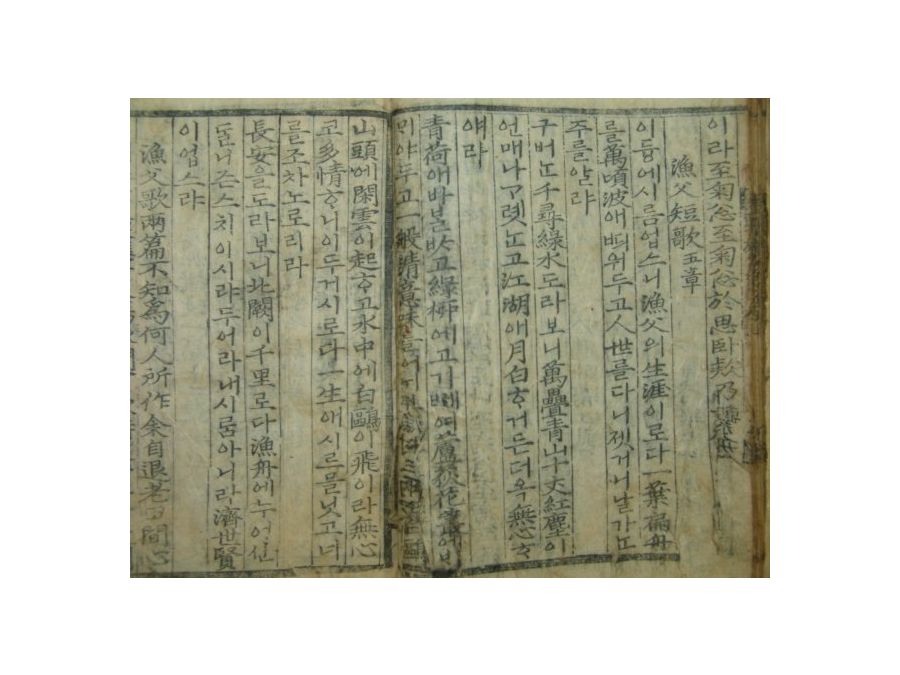 이라至匊忩至匊忩於思臥欸乃
漁父短歌五章
이듕에시름업스니漁父의生涯이로다一葉扁舟
를萬頃波애띄워두고人世를다니젯거니날가ᄂᆞᆫ
주를알랴
구버ᄂᆞᆫ千尋綠水도라보니萬疊靑山十丈紅塵이
언매나ᄀᆞ롓ᄂᆞᆫ고江湖애月白ᄒᆞ거든더옥無心ᄒᆞ
얘라
靑荷애바ᄇᆞᆯᄡᆞ고綠柳에고기ᄢᅦ여蘆荻花
ᄆᆡ야두고一般淸意味
山頭에閑雲이起ᄒᆞ고水中에白鷗이飛이라無心
코多情ᄒᆞ니이두거시로다一生애시르믈닛고너
를조차노로리라
長安을도라보니北闕이千里로다漁舟에누어신
ᄃᆞᆯ니즌스치이시랴두어라내시름아니라濟世賢
이업스랴
漁父歌兩篇不知爲何人所作余自退老田間心